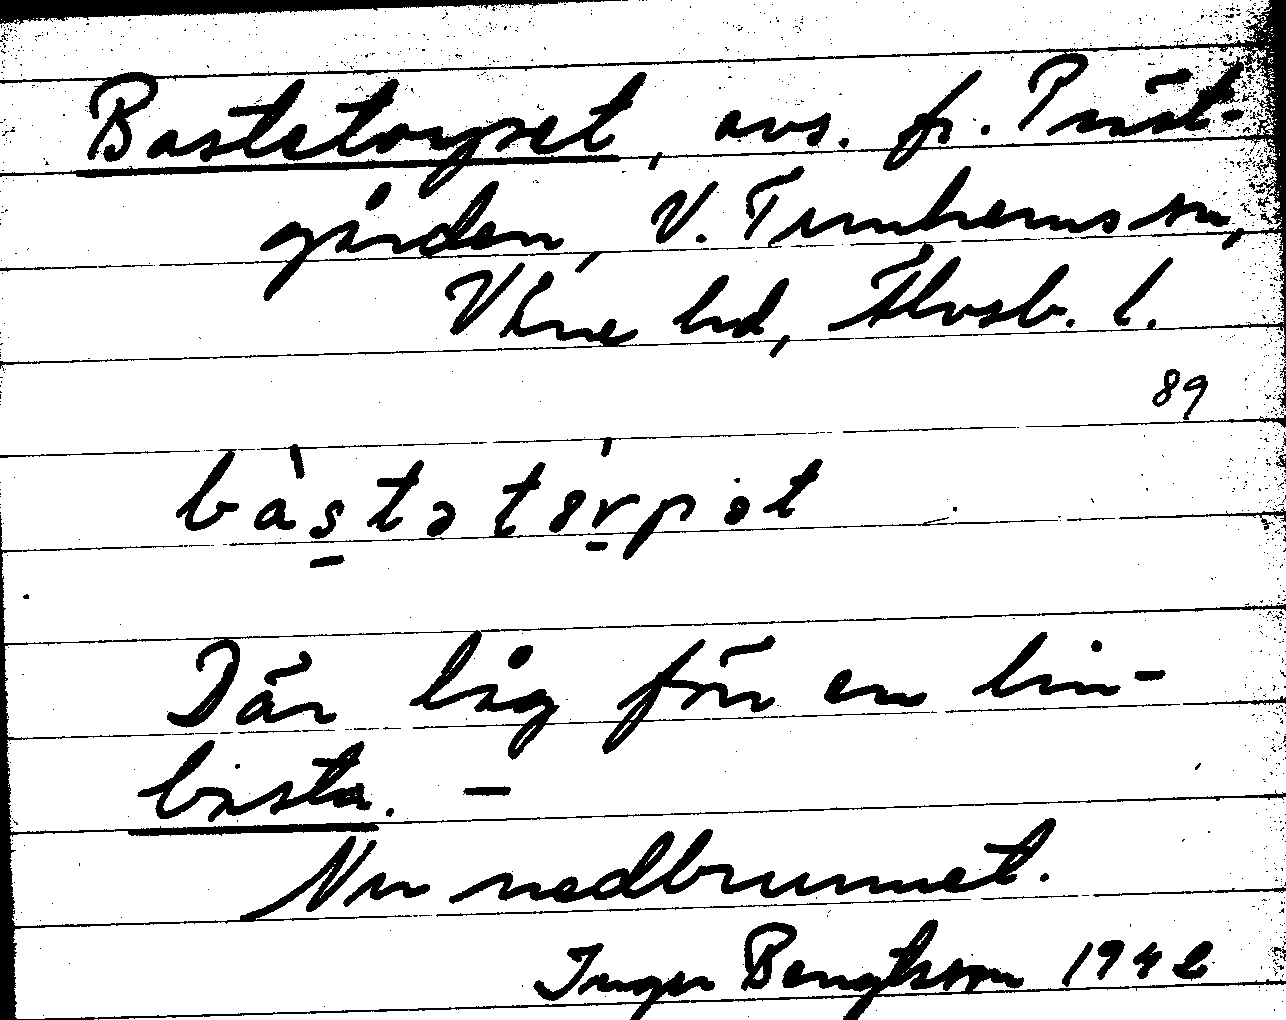 Bastetorpet, avs. fr. Präst-
gården, V. Tunhems sn,
Väne hd, Älvsb. l.
89
bàstətórpət
Där låg för en lin-
basta. –
Nu nedbrunnet.
Inger Bengtsson 1942